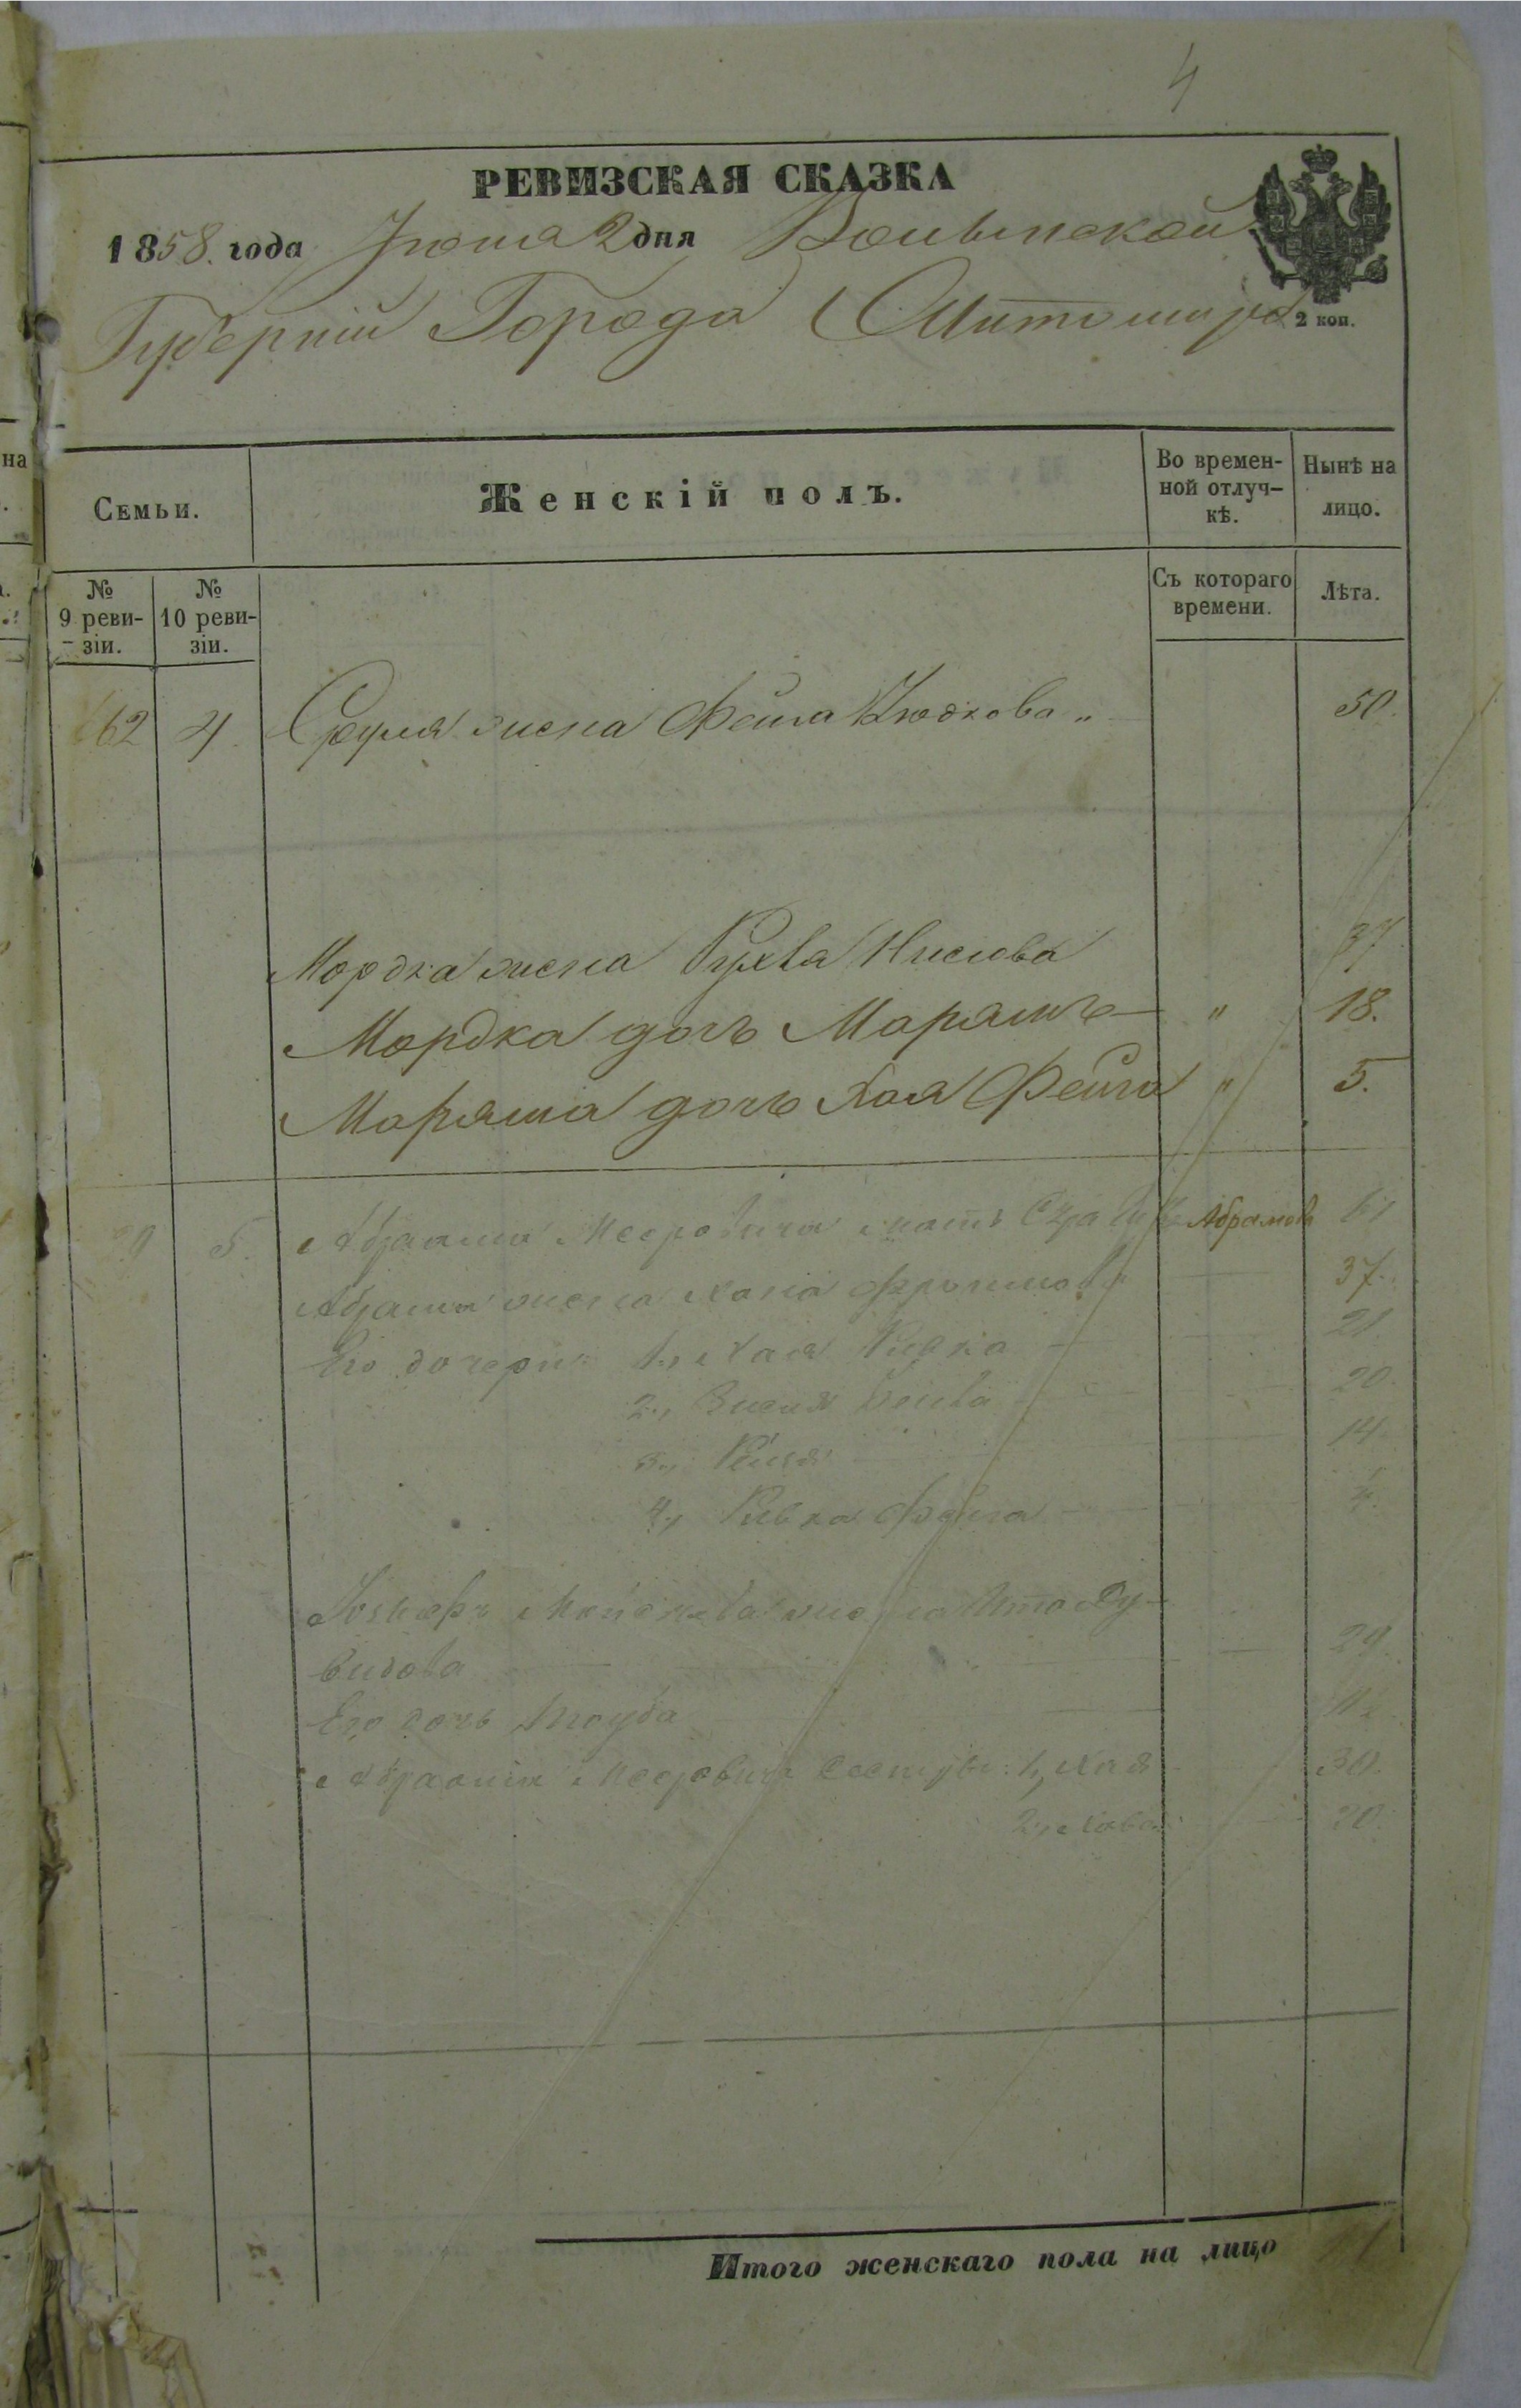 4
РЕВИЗСКАЯ СКАЗКА
1858. года Июня 2 дня Волынской
Губерніи Города Житомира
2 коп.
Семьи.
Женскій полъ.
Во времен-
ной отлуч-
кѣ.
Нынѣ на
лицо.
№
9 реви-
зіи.
№
10 реви-
зіи.
Съ котораго
времени.
Лѣта.
62 4 Сруля жена Фейга Юдкова " 50.
Мордка жена Рухва Нисова 37.
Мордка дочь Маряша " 18.
Маряша дочь Хая Фейга " 5.
5. Абрама Мееровича мать Абрамов 61
Абрама жена Хана Фроимова 37.
Его дочери 1., Хая Ривка 21.
2., Зисля 20.
3., 14
4., Ривка Фейга
Мошкова жена Ита Ду-
видова 29.
Его дочь Тауба
Абрама Мееровича сестры: 1, Хая 30.
2., Хава 20.
Итого женскаго пола на лицо